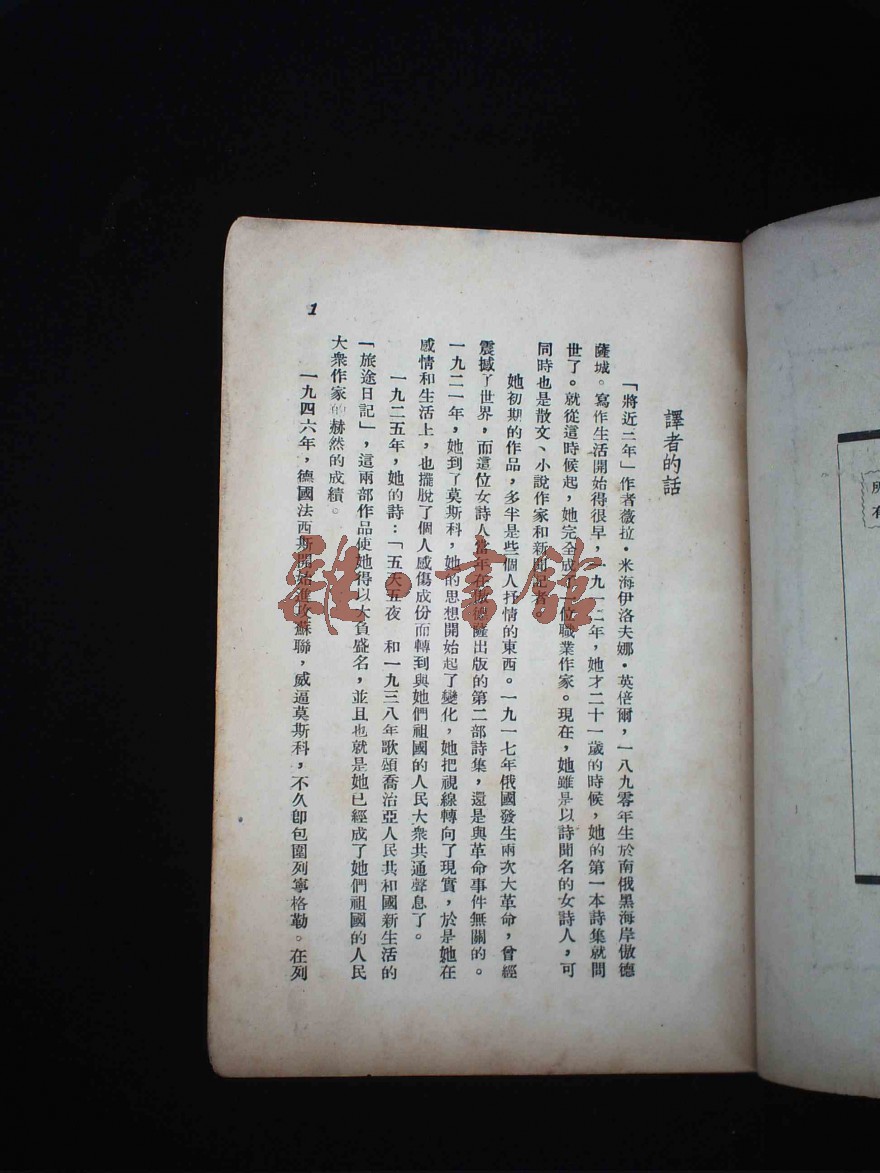 譯者的話
「將近三年」作者薇拉·米海伊洛夫娜·英倍爾,一八九零年生於南俄黑海岸傲德
薩城。寫作生活開始得很早,一九一二年,她才二十一歲的時候,她的第一本詩集就問
世了。就從這時候起,她完全成了一位職業作家。現在,她雖是以詩聞名的女詩人,可
同時也是散文、小說作家和新聞記者。
她初期的作品,多半是些個人抒情的東西。一九一七年俄國發生兩次大革命,曾經
震撼了世界,而這位女詩人當年在傲德薩出版的第二部詩集,還是與革命事件無關的。
一九二一年,她到了莫斯科,她的思想開始起了變化,她把視線轉向了現實,於是她在
感情和生活上,也擺脫了個人感傷成份而轉到與她們祖國的人民大衆共通聲息了。
一九二五年,她的詩:「五天五夜 和一九三八年歌頌喬治亞人民共和國新生活的
「旅途日記」,這兩部作品使她得以大負盛名,並且也就是她已經成了她們祖國的人民
大衆作家的赫然的成績。
一九四六年,德國法西斯開始進攻蘇聯,威逼莫斯科,不久卽包圍列寧格勒。在列
1
所
有
書館